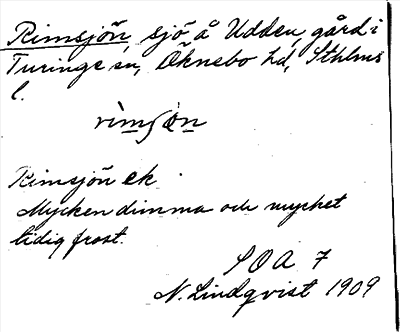 Rimsjön, sjö å Udden, gård i
Turinge sn, Öknebo hd, Sthlms
l.
Rimsjön ek.
Mycken dimma och mycket
tidig frost.
SOA 7
N. Lindqvist 1909